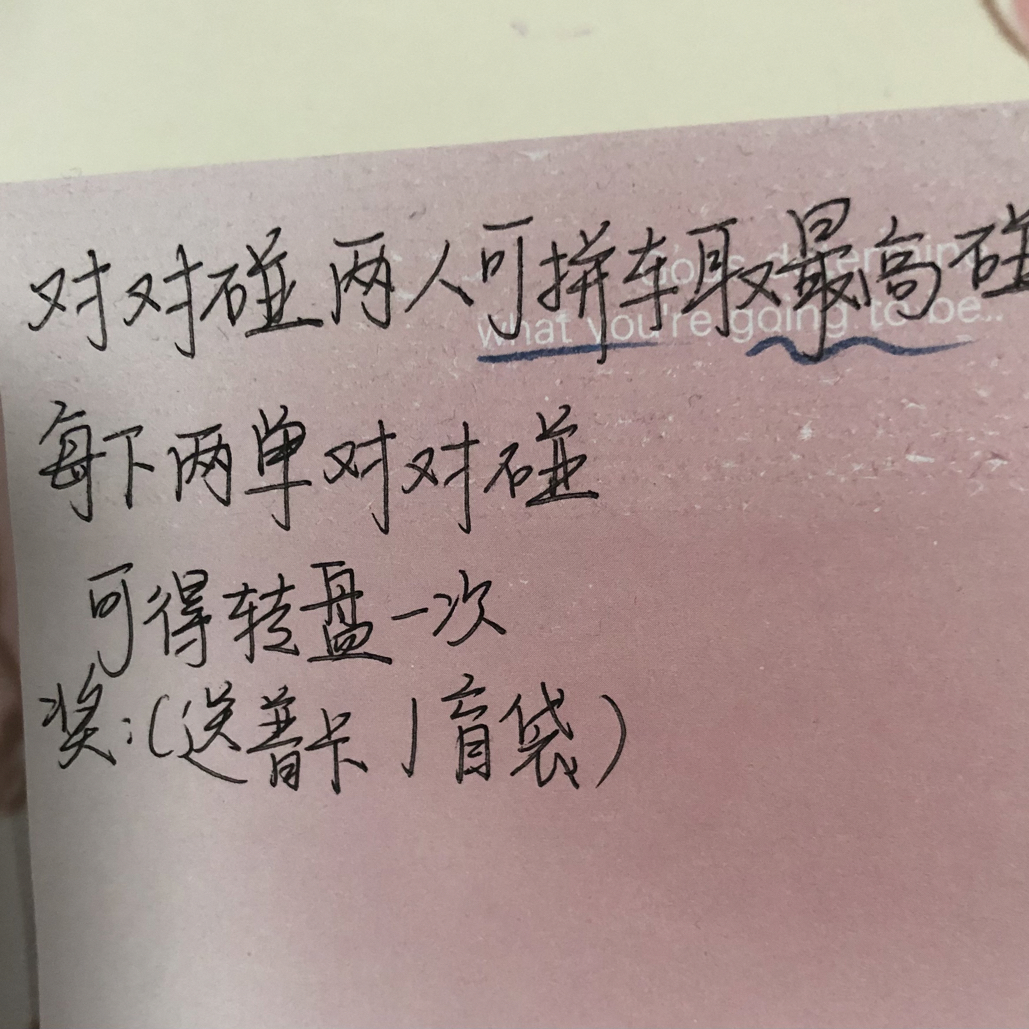 对对碰 两人可拼车取最高碰
what you're going to be..
每下两单对对碰
可得转盘一次
奖:(送普卡 / 盲袋)